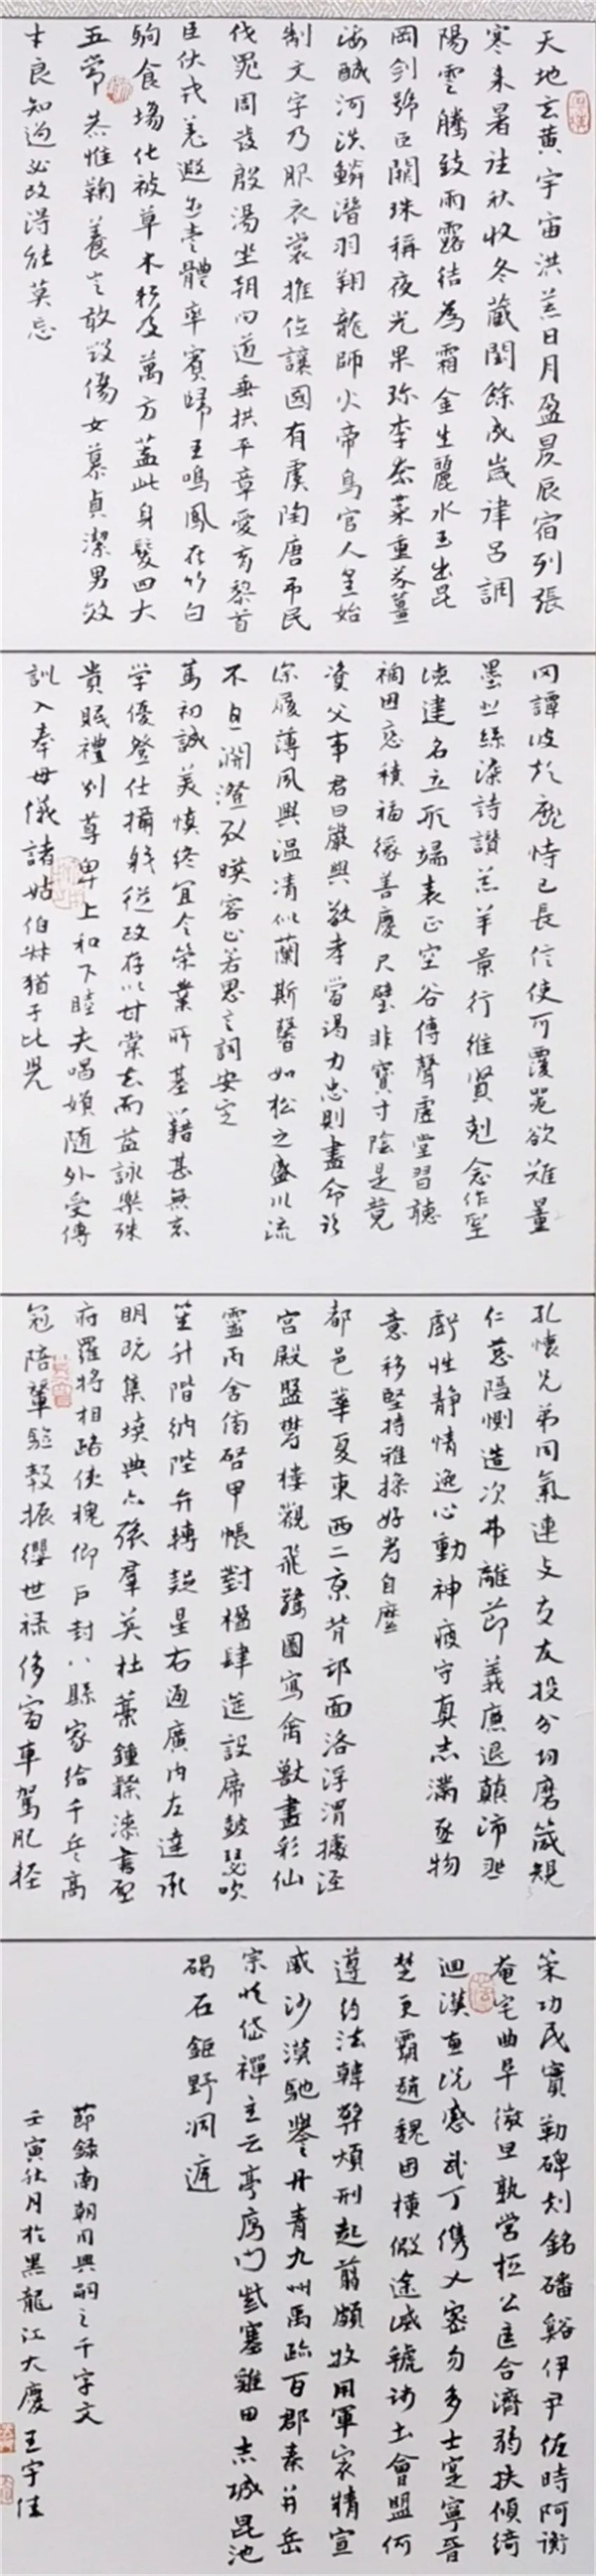 天地玄黄宇宙洪荒日月盈昃辰宿列張
寒来暑往秋收冬藏閏餘成嵗律吕調
陽雲騰致雨露结為霜金生麗水玉出昆
岡剑號巨闕珠稱夜光果珍李柰菜重芥薑
海醎河淡鱗潛羽翔龍師火帝鳥官人皇始
制文字乃服衣裳推位讓國有虞陶唐吊民
伐罪周發殷湯坐朝问道垂拱平章愛育黎首
臣伏戎羌遐迩壹體率賓歸王鳴鳳在竹白
駒食場化被草木賴及萬方蓋此身髮四大
五常恭惟鞠養豈敢毁傷女慕貞潔男效
才良知過必改得能莫忘
罔譚彼短靡恃己長信使可覆器欲难量
墨悲絲染詩讃羔羊景行維賢剋念作聖
德建名立形端表正空谷傳聲虛堂習聽
禍因惡積福緣善慶尺璧非寶寸陰是競
資父事君曰嚴與敬孝當竭力忠則盡命临
深履薄夙興温凊似蘭斯馨如松之盛川流
不息淵澄取暎容止若思言詞安定
篤初誠美慎终宜令榮業所基籍甚無竟
学優登仕攝職從政存以甘棠去而益詠樂殊
貴賤禮别尊卑上和下睦夫唱婦随外受傅
訓入奉母儀諸姑伯叔猶子比兒
孔懷兄弟同氣連枝交友投分切磨箴規
仁慈隱惻造次弗離節義廉退顛沛匪
虧性静情逸心動神疲守真志滿逐物
意移堅持雅操好爵自縻
都邑華夏東西二京背邙面洛浮渭據泾
宫殿盤鬱樓觀飛驚圖寫禽獸畫彩仙
靈丙舍傍啓甲帳對楹肆筵設席鼓瑟吹
笙升階納陛弁轉疑星右通廣内左達承
明既集墳典亦聚羣英杜藁鍾隸漆書壁
府羅將相路俠槐卿户封八縣家给千兵高
冠陪輦驅轂振纓世禄侈富車駕肥轻
策功茂實勒碑刻銘磻谿伊尹佐時阿衡
奄宅曲阜微旦孰营桓公匡合濟弱扶傾绮
迴漢惠说感武丁俊乂密勿多士寔寧晋
楚更霸趙魏困橫假途滅虢踐土會盟何
遵约法韓弊煩刑起翦頗牧用軍宻精宣
威沙漠馳譽丹青九州禹跡百郡秦并岳
宗恒岱禪主云亭雁门紫塞雞田赤城昆池
碣石鉅野洞庭
節錄南朝周興嗣之千字文
壬寅秋月於黑龍江大慶王宇佳